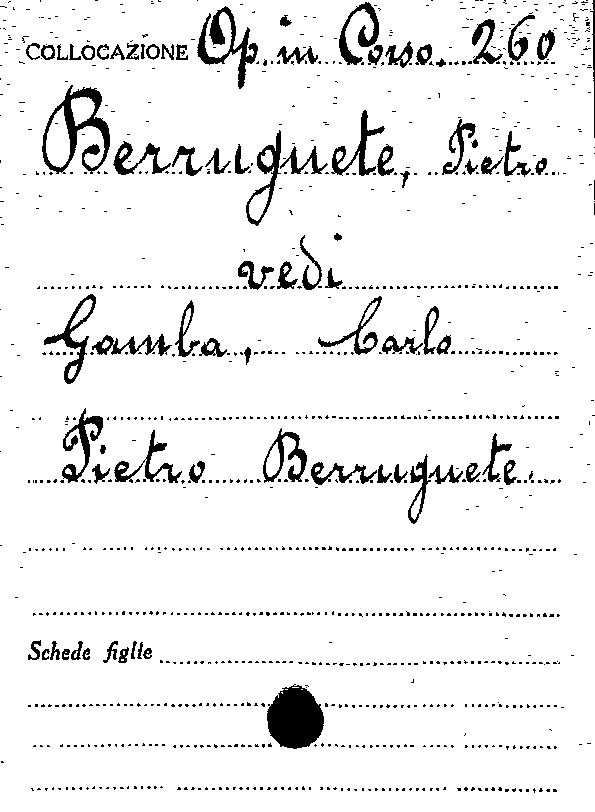 COLLOCAZIONE Op. in Corso. 260
Berruguete, Pietro
vedi
Gamba, Carlo
Pietro Berruguete.
Schede figlie